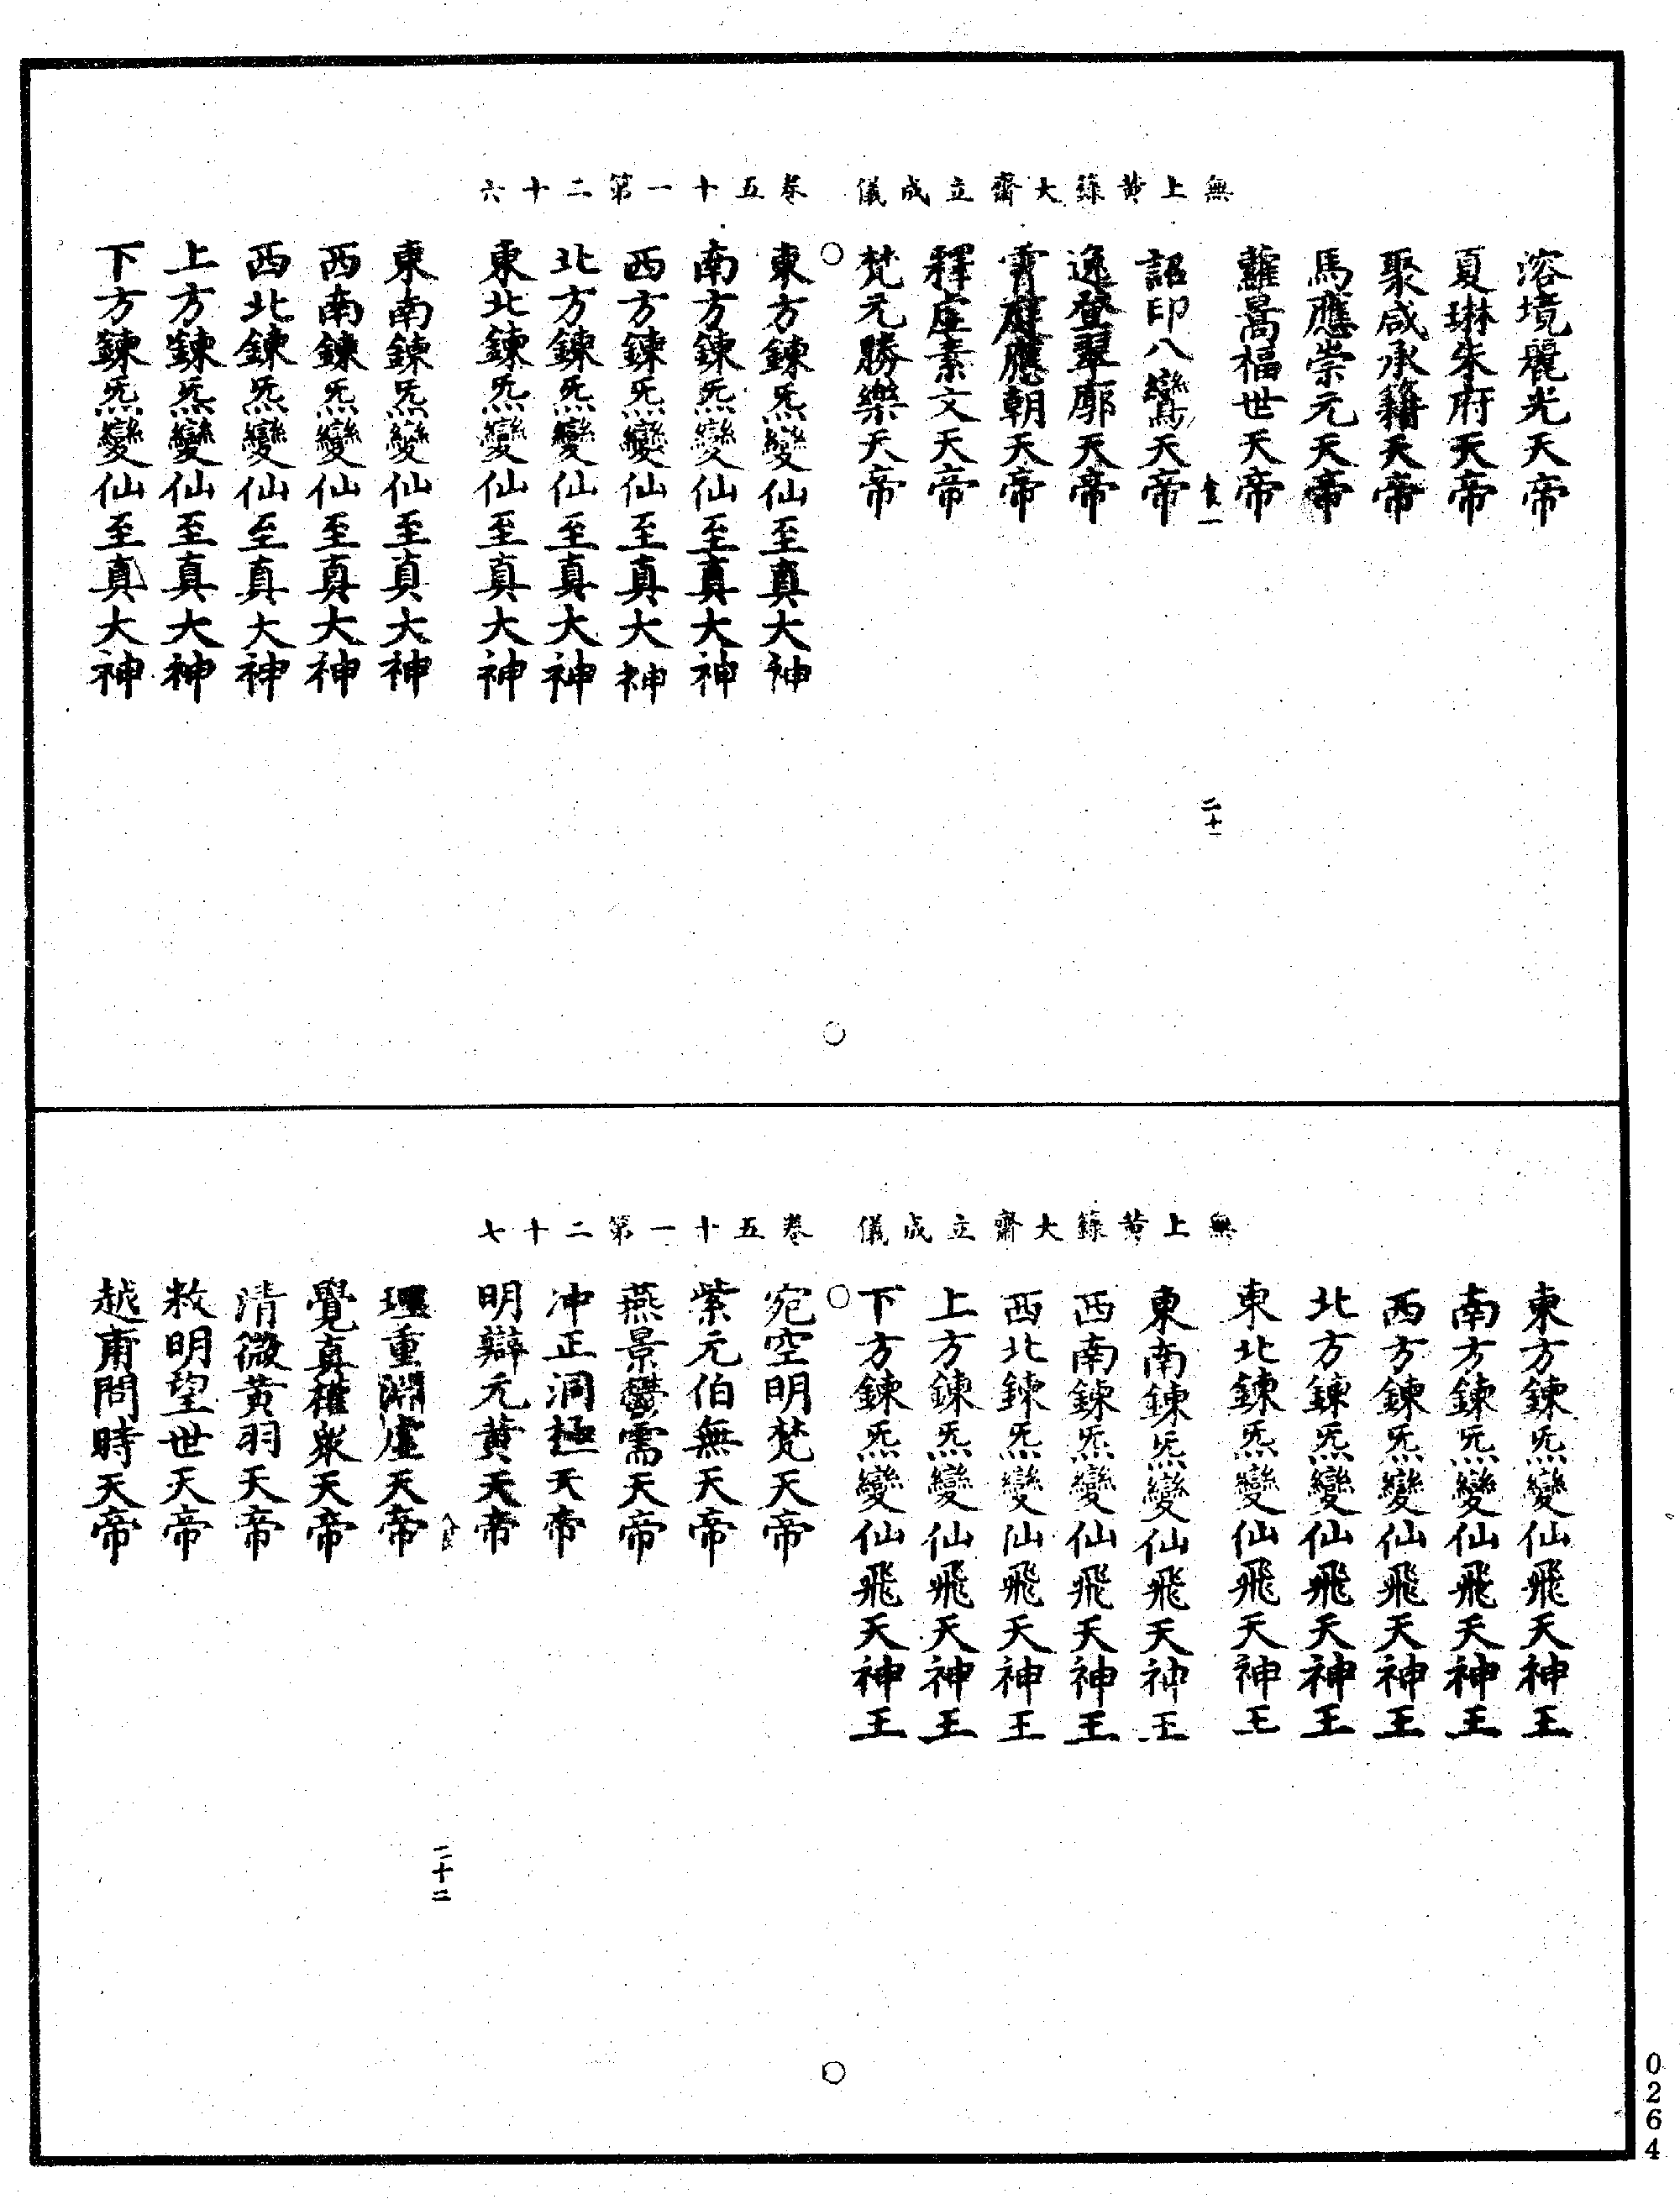 無上黃籙大齋立成儀　卷五十一第二十六
溶境麗光天帝
夏琳朱府天帝
聚咸承籍天帝
馬應崇元天帝
蘿暠福世天帝
食一
二十一
詔印八鸞天帝
逸登翠廓天帝
霄庭應朝天帝
釋虛素文天帝
梵元勝樂天帝
東方鍊炁變仙至真大神
南方鍊炁變仙至真大神
西方鍊炁變仙至真大神
北方鍊炁變仙至真大神
東北鍊炁變仙至真大神
東南鍊炁變仙至真大神
西南鍊炁變仙至真大神
西北鍊炁變仙至真大神
上方鍊炁變仙至真大神
下方鍊炁變仙至真大神
無上黃籙大齋立成儀　卷五十一第二十七
東方鍊炁變仙飛天神王
南方鍊炁變仙飛天神王
西方鍊炁變仙飛天神王
北方鍊炁變仙飛天神王
東北鍊炁變仙飛天神王
東南鍊炁變仙飛天神王
西南鍊炁變仙飛天神王
西北鍊炁變仙飛天神王
上方鍊炁變仙飛天神王
下方鍊炁變仙飛天神王
宛空明梵天帝
紫元伯無天帝
燕景鬱雲天帝
冲正洞極天帝
明辯元黃天帝
二十二
理重淵虛天帝
覺真權衆天帝
清微黃羽天帝
敉明望世天帝
越甫問時天帝
0264